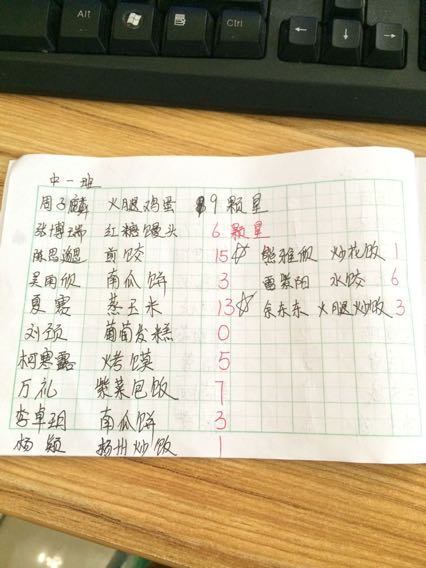 Alt
Ctrl
中一班
周子麟 火腿鸡蛋 9颗星
张博瑞 红糖馒头 6颗星
陈思邈 煎饺 15☆ 熊雅欣 炒花饭 1
吴雨欣 南瓜饼 3 雷紫阳 水饺 6
夏赛 蒸玉米 13☆ 余东东 火腿炒饭 3
刘颈 葡萄发糕 0
柯寒露 烤馍 5
万礼 紫菜包饭 7
李卓玥 南瓜饼 3
杨颖 扬州炒饭 1